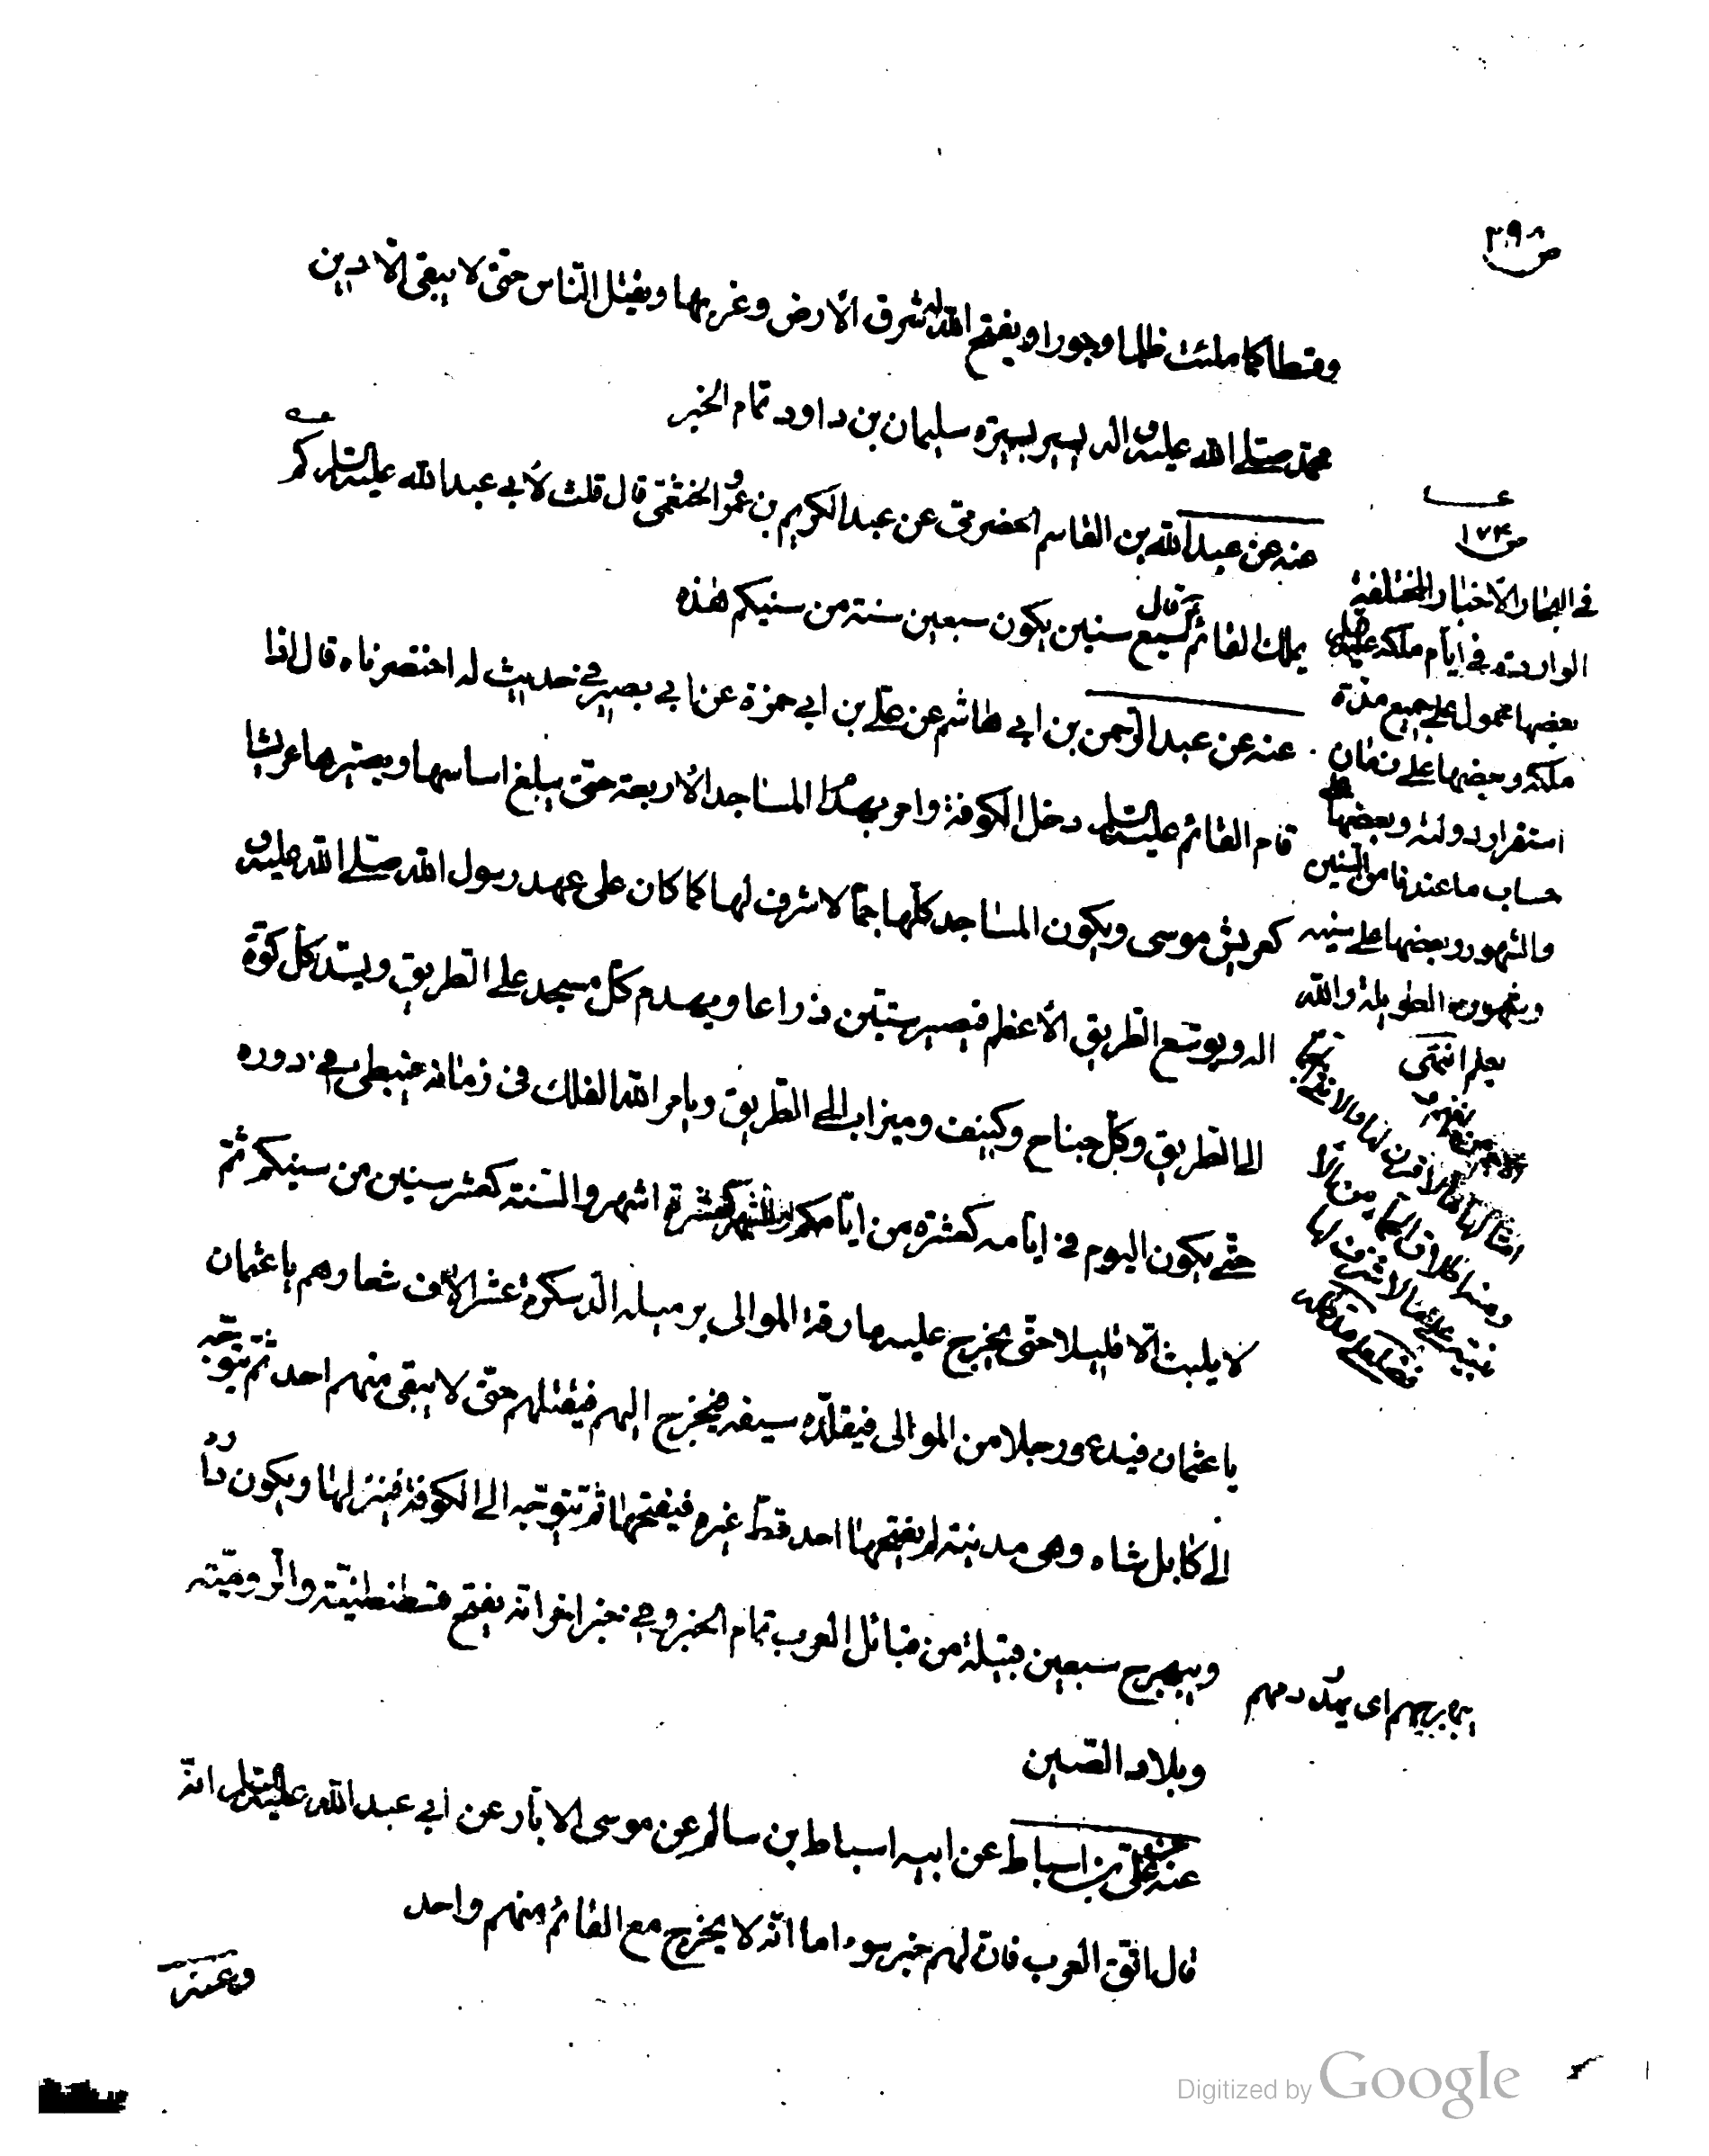 ص ٣٩٨
وقسطا كما ملئت ظلما وجورا ويفتح الله له شرق الأرض وغربها ويقتل الناس حتى لا يبقى إلا دين
محمد صلى الله عليه واله يسير بسيرة سليمان بن داود تمام الخبر
عنه عن عبد الله بن القاسم الحضرمي عن عبد الكريم بن عمرو الخثعمي قال قلت لأبي عبد الله عليه السلام كم
يملك القائم قال سبع سنين يكون سبعين سنة من سنيكم هذه
عنه عن عبد الرحمن بن ابي هاشم عن علي بن ابي حمزة عن ابي بصير في حديث له اختصرناه قال اذا
قام القائم عليه السلام دخل الكوفة وامر بهدم المساجد الأربعة حتى يبلغ اساسها ويصيرها عريشا
كعريش موسى ويكون المساجد كلها جما لا شرف لها كما كان على عهد رسول الله صلى الله عليه و
اله ويوسع الطريق الأعظم فيصير ستين ذراعا ويهدم كل مسجد على الطريق ويسد كل كوة
الى الطريق وكل جناح وكنيف وميزاب الى الطريق ويامر الله الفلك في زمانه فيبطى في دوره
حتى يكون اليوم في ايامه كعشرة من ايامكم والشهر كعشرة اشهر والسنة كعشر سنين من سنيكم ثم
لا يلبث الا قليلا حتى يخرج عليه مارقة الموالى برميلة الدسكرة عشر الاف شعارهم يا عثمان
يا عثمان فيدعو رجلا من الموالى فيقلده سيفه فيخرج اليهم فيقتلهم حتى لا يبقى منهم احد ثم يتوجه
الى كابل شاه وهى مدينة لم يفتحها احد قط غيره فيفتحها ثم يتوجه الى الكوفة فينزلها ويكون داره
ويبهرج سبعين قبيلة من قبائل العرب تمام الخبر وفي خبر اخر انه يفتح قسطنطنية والرومية
وبلاد الصين
عنه عن علي بن اسباط عن ابيه اسباط بن سالم عن موسى الابار عن ابي عبد الله عليه السلام انه
قال اتق العرب فان لهم خبر سوء اما انه لا يخرج مع القائم منهم واحد
وعنه
ص ١٧٤
في البحار الاخبار المختلفة
الواردة في ايام ملكه عليه السلام
بعضها محمول على جميع مدة
ملكه وبعضها على زمان
استقرار دولته وبعضها على
حساب ما عندنا من السنين
والشهور وبعضها على سنيه
وشهوره الطويلة والله
يعلم انتهى
يبهرجهم اى يهدر دمهم